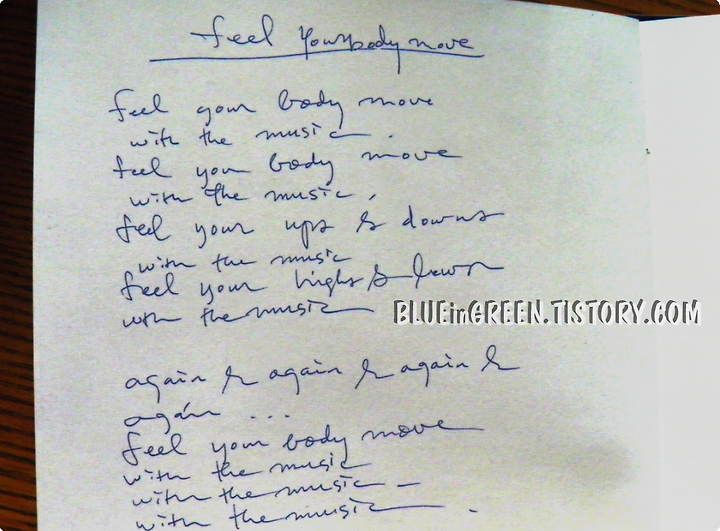 feel your body move
feel your body move
with the music.
feel your body move
with the music.
feel your ups & downs
with the music
feel your highs & lows
with the music
BLUEinGREEN.TISTORY.COM
again & again & again &
again ...
feel your body move
with the music
with the music -
with the music .